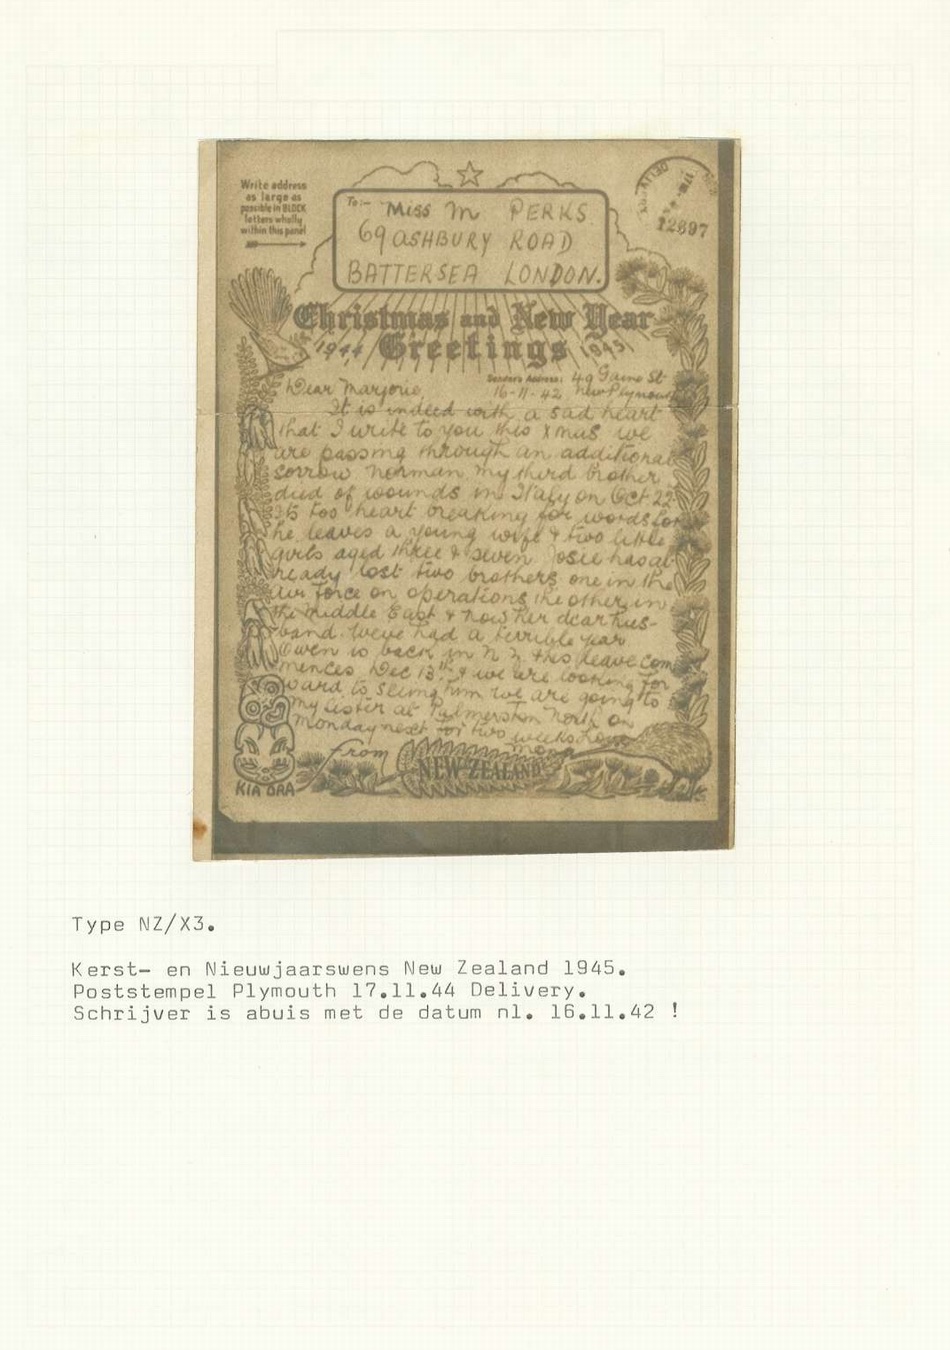 Write address
as large as
possible in BLOCK
letters wholly
within this panel
To:- Miss M PERKS
69 ASHBURY ROAD
BATTERSEA LONDON.
DELIV
12897
Christmas and New Year
1944 Greetings 1945
Sender's Address: 49 Gaine St
16-11-42 New Plymouth
Dear Marjorie
It is indeed with a sad heart
that I write to you this Xmas we
are passing through an additional
sorrow Norman my third brother
died of wounds in Italy on Oct 22
its too heart breaking for words for
he leaves a young wife & two little
girls aged three & seven Josie has al-
ready lost two brothers one in the
air force on operations the other in
the Middle East & now her dear hus-
band. Weve had a terrible year
Owen is back in N Z & his leave com
mences Dec 13th & we are looking for
ward to seeing him we are going to
my sister at Palmerston North on
Monday next for two weeks
from
NEW ZEALAND
KIA ORA
Type NZ/X3.
Kerst- en Nieuwjaarswens New Zealand 1945.
Poststempel Plymouth 17.11.44 Delivery.
Schrijver is abuis met de datum nl. 16.11.42 !